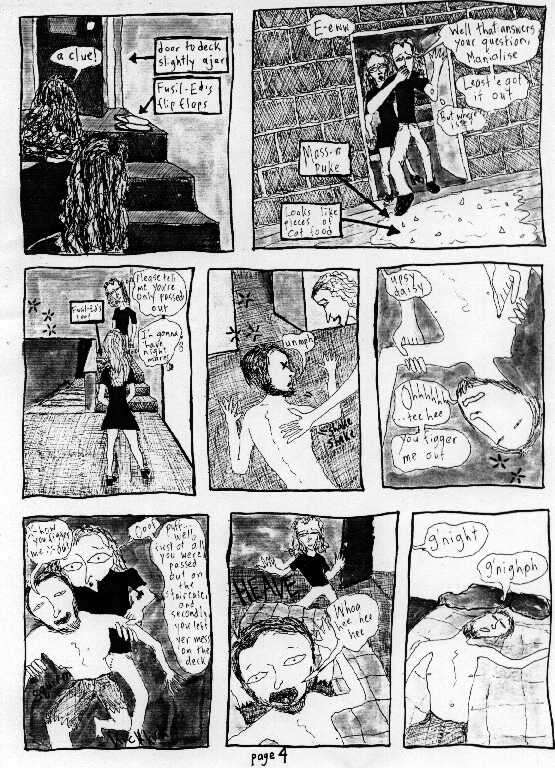 a clue!
door to deck
slightly ajar
Fusil-Ed's
flip flops
E-eww
Well that answers
your question,
Manalise
Least 'e got
it out
But where
is 'e
Mass-o
puke
Looks like
pieces of
cat food
Please tell
me you're
only passed
out
Fusil-Ed's
foot
I'm gonna
have
night
mares
unmph
shake
shake
upsy
daisy
Ohhhhhh
..tee hee
you figger
me out
how
you figger
me out
Cool
Well,
first of all
you were
passed
out on
the
staircase
and
secondly
you left
yer mess
on the
deck
HEAVE
Whoa
hee hee
hee
g'night
g'nighph
page 4